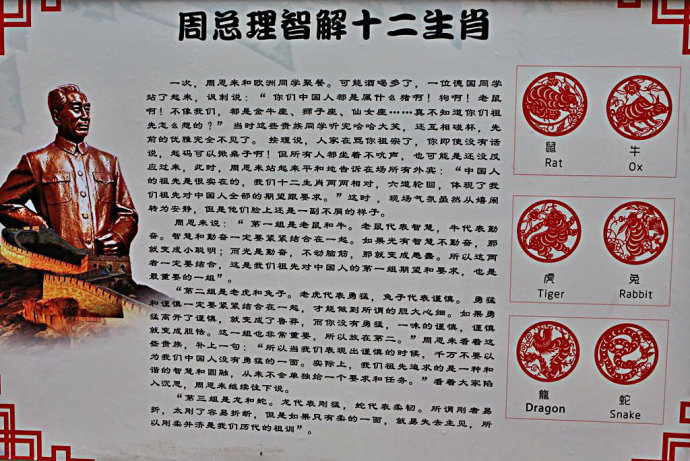 周总理智解十二生肖
一次，周恩来和欧洲同学聚餐。可能酒喝多了，一位德国同学
站了起来，讽刺说：“你们中国人都是属什么猪啊！狗啊！老鼠
啊！不像我们，都是金牛座、狮子座、仙女座……真不知道你们祖
先怎么想的？”当时这些贵族同学听完哈哈大笑，还互相碰杯，先
前的优雅完全不见了。按理说，人家在骂你祖宗了，你即使没有话
说，起码可以掀桌子啊！但所有人都坐着不吭声，也可能是还没反
应过来，此时，周恩来站起来平和地告诉在场所有外宾：“中国人
的祖先是很实在的，我们十二生肖两两相对，六道轮回，体现了我
们祖先对中国人全部的期望跟要求。”这时，现场气氛虽然从嬉闹
转为安静，但是他们脸上还是一副不屑的样子。
周恩来说：“第一组是老鼠和牛。老鼠代表智慧，牛代表勤
奋。智慧和勤奋一定要紧紧结合在一起。如果光有智慧不勤奋，那
就变成小聪明；而光是勤奋，不动脑筋，那就变成愚蠢。所以这两
者一定要结合，这是我们祖先对中国人的第一组期望和要求，也是
最重要的一组”。
“第二组是老虎和兔子。老虎代表勇猛，兔子代表谨慎。勇猛
和谨慎一定要紧紧结合在一起，才能做到所谓的胆大心细。如果勇
猛离开了谨慎，就变成了鲁莽，而你没有勇猛，一味的谨慎，谨慎
就变成胆怯。这一组也非常重要，所以放在第二。”周恩来看着这
些贵族，补上一句：“所以当我们表现出谨慎的时候，千万不要以
为我们中国人没有勇猛的一面。实际上，我们祖先追求的是一种和
谐的智慧和圆融，从来不会单独给一个要求和任务。”看着大家陷
入沉思，周恩来继续往下说。
“第三组是龙和蛇。龙代表刚猛，蛇代表柔韧。所谓刚者易
折，太刚了容易折断，但是如果只有柔的一面，就易失去主见，所
以刚柔并济是我们历代的祖训”。
鼠
Rat
牛
Ox
虎
Tiger
兔
Rabbit
龍
Dragon
蛇
Snake